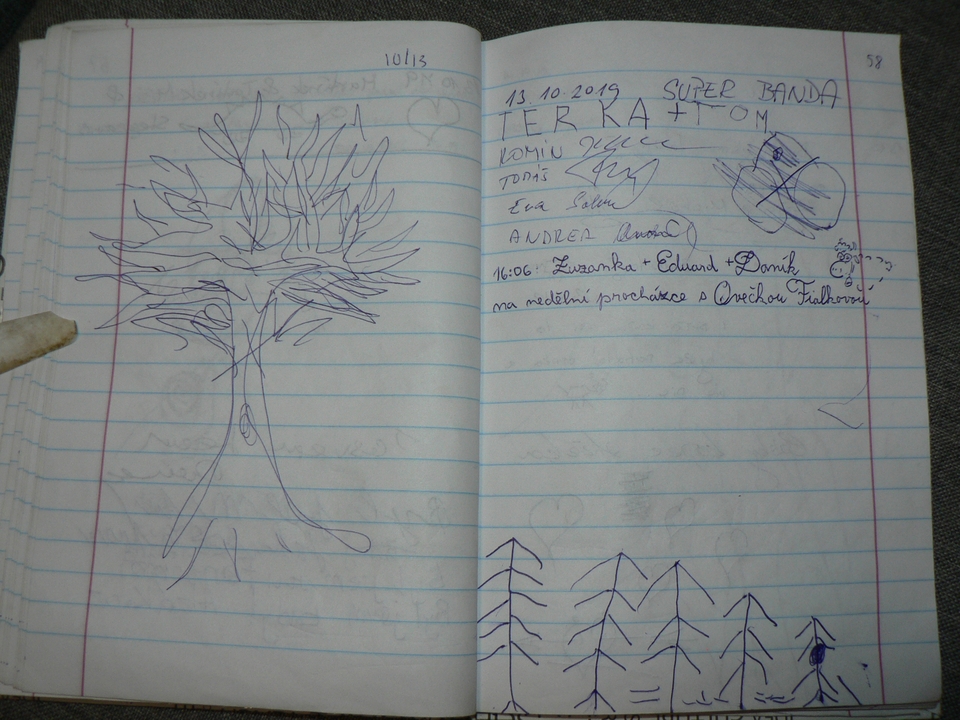 10/13
58
13.10.2019 SUPER BANDA
TERKA + TOM
KOMÍN
TOMÁŠ
Eva
ANDREA
16:06: Zuzanka + Eduard + Daník
na nedělní procházce s Ovečkou Fialkovou